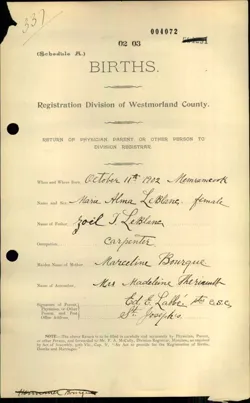 337
004072
02 03
(Schedule A.)
BIRTHS.
Registration Division of Westmorland County.
RETURN OF PHYSICIAN PARENT OR OTHER PERSON TO
DIVISION REGISTRAR.
When and Where Born, October 11th 1902 Memramcook
Name and Sex, Marie Alma LeBlanc, female
Name of Father, Zoël T. LeBlanc
Occupation, Carpenter
Maiden Name of Mother, Marceline Bourque
Name of Accoucheur, Mrs Madeline Theriault
Signature of Parent, Physician or Other Person, and Post Office Address.
Ed. E. Labbé ptre c.s.c.
St. Joseph's
NOTE.—The above Return is to be filled in carefully and separately by Physician, Parent,
or other Person, and forwarded to
as required
by Act of Assembly,
"An Act to provide for the Registration of Births,
Deaths and Marriages."